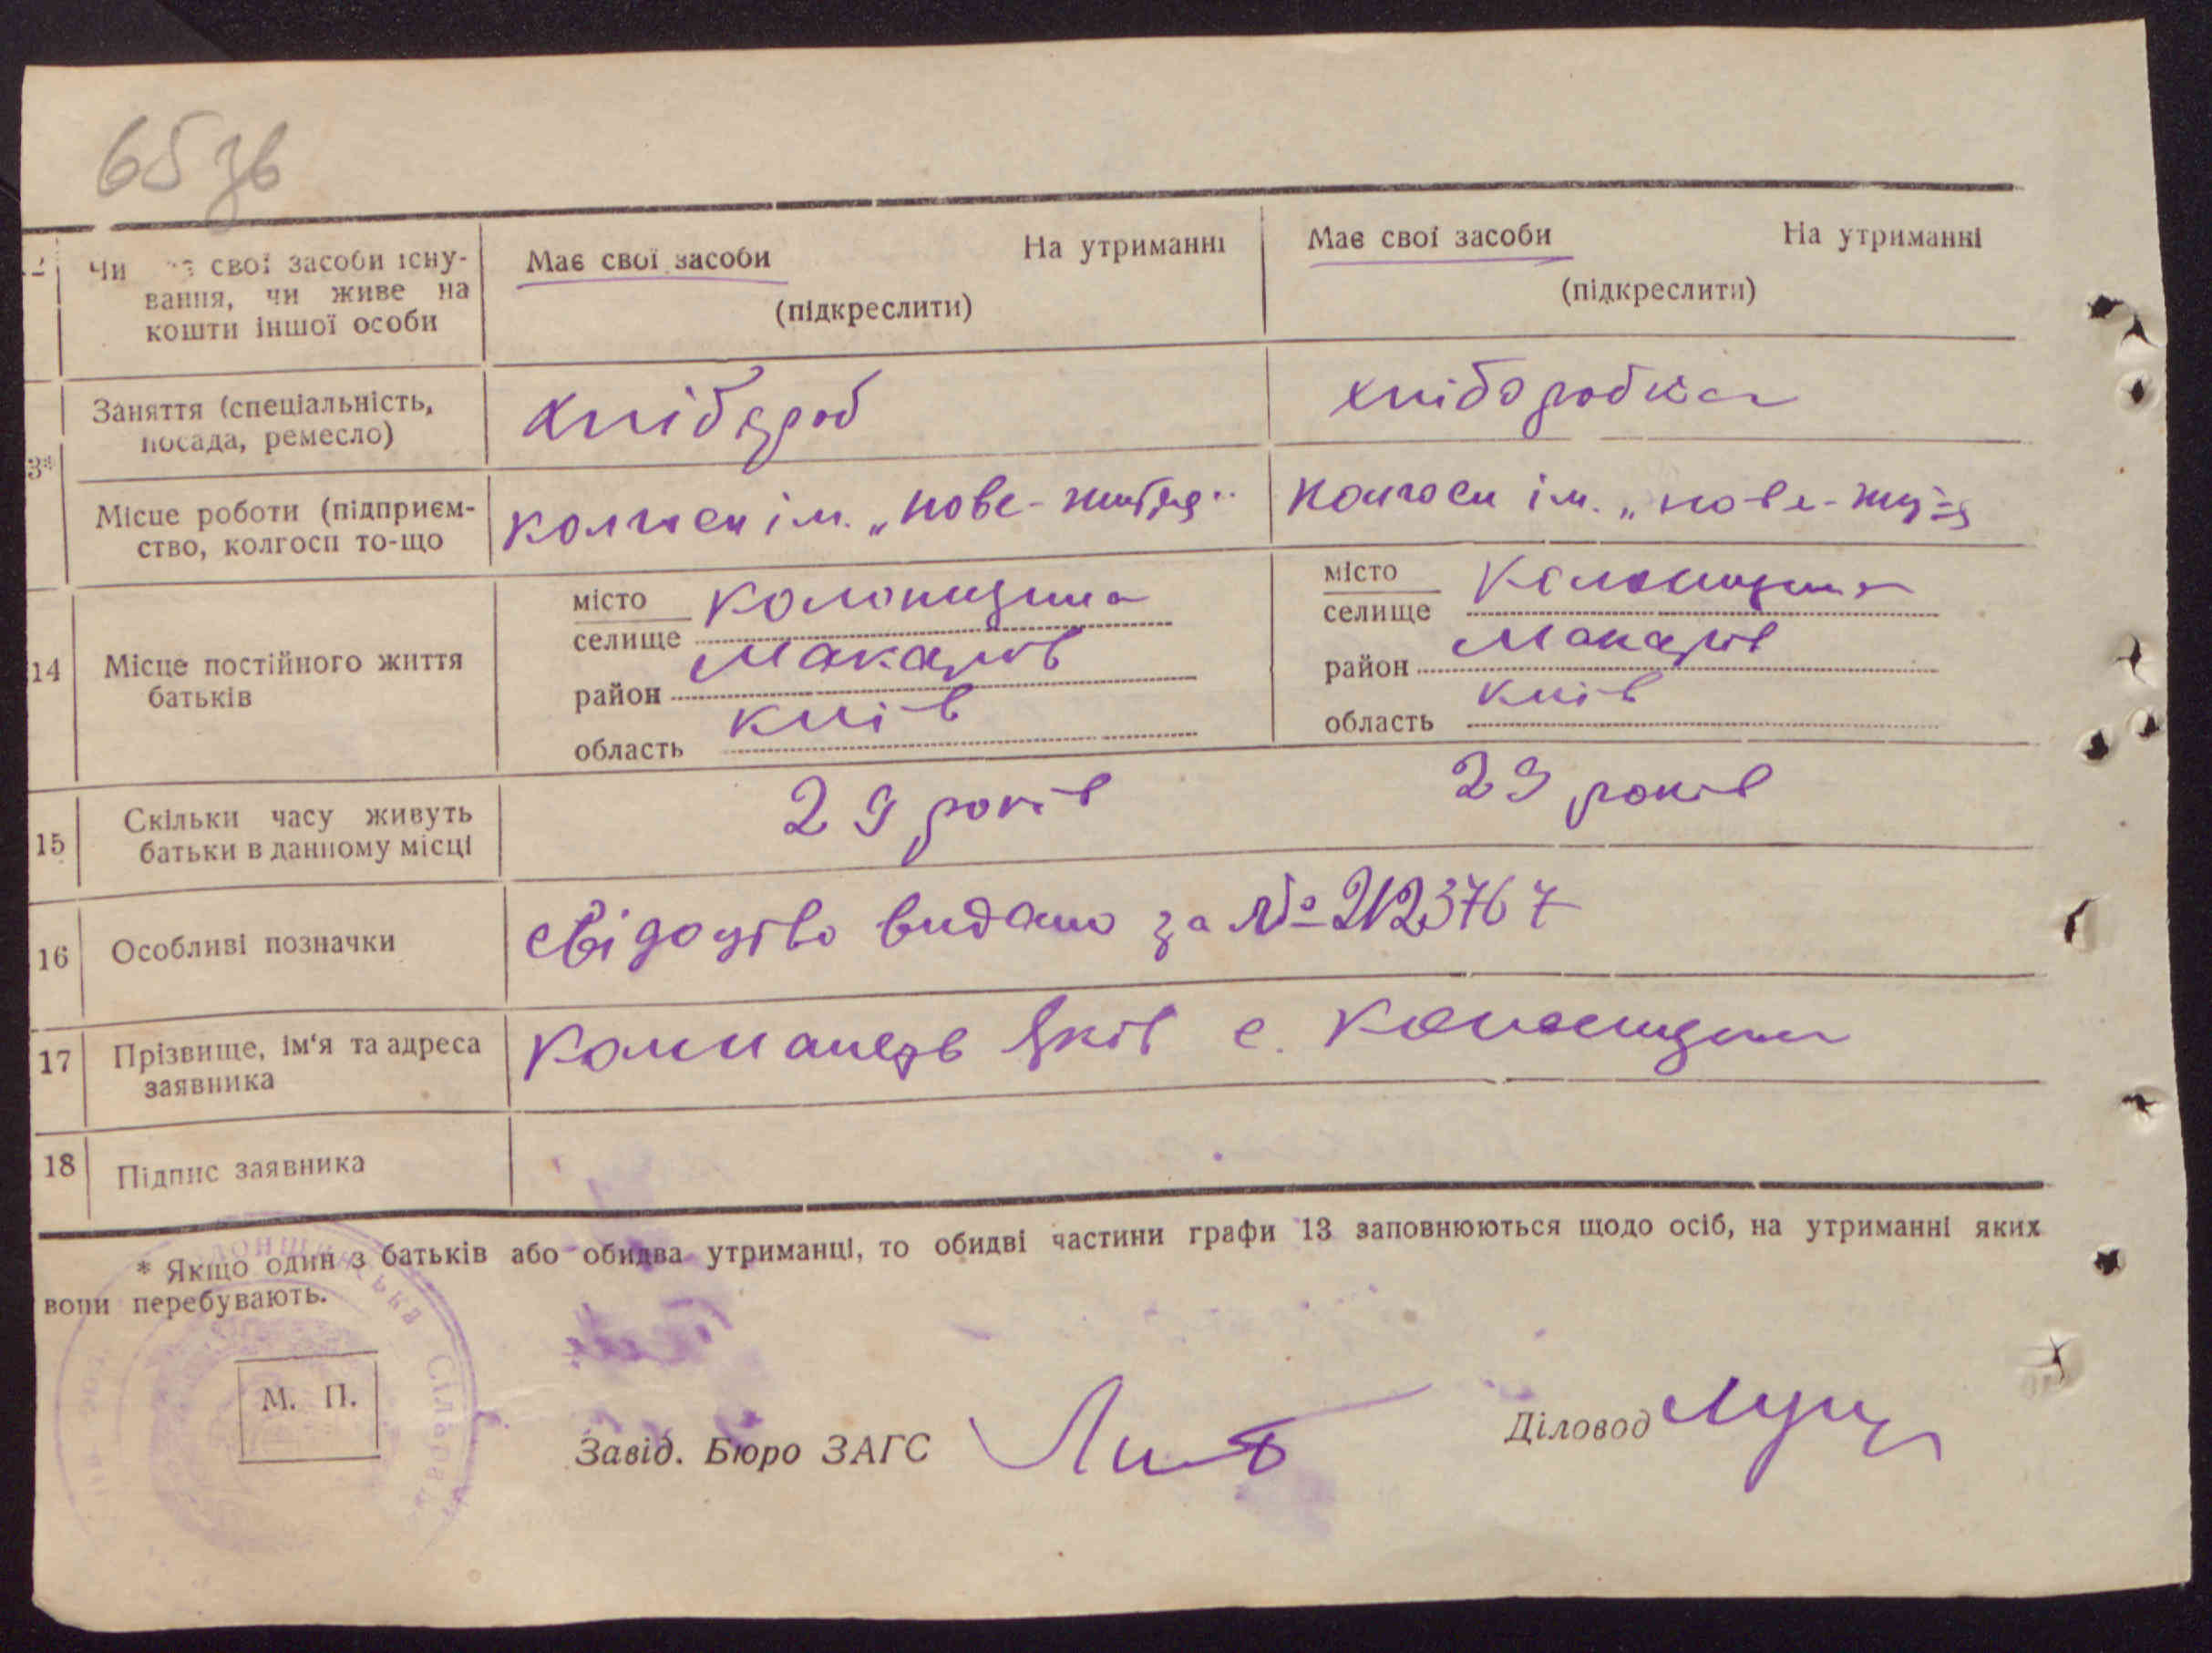 65 зв
Чи свої засоби існу- Має свої засоби На утриманні Має свої засоби На утриманні
вання, чи живе на (підкреслити) (підкреслити)
кошти іншої особи
Заняття (спеціальність, хлібороб хлібородка
посада, ремесло)
3*
Місце роботи (підприєм- колгосп ім. „нове-життя" колгосп ім. „нове-життя
ство, колгосп то-що
14 Місце постійного життя
батьків
місто Колонщина місто Колонщина
селище селище
район Макарів район Макарів
область Київ область Київ
15 Скільки часу живуть 29 років 29 років
батьки в данному місці
16 Особливі позначки свідоцтво видано за № 2123767
17 Прізвище, ім'я та адреса Яків с. Колонщина
заявника
18 Підпис заявника
* Якщо один з батьків або обидва утриманці, то обидві частини графи 13 заповнюються щодо осіб, на утриманні яких
вони перебувають.
М. П.
Завід. Бюро ЗАГС Діловод